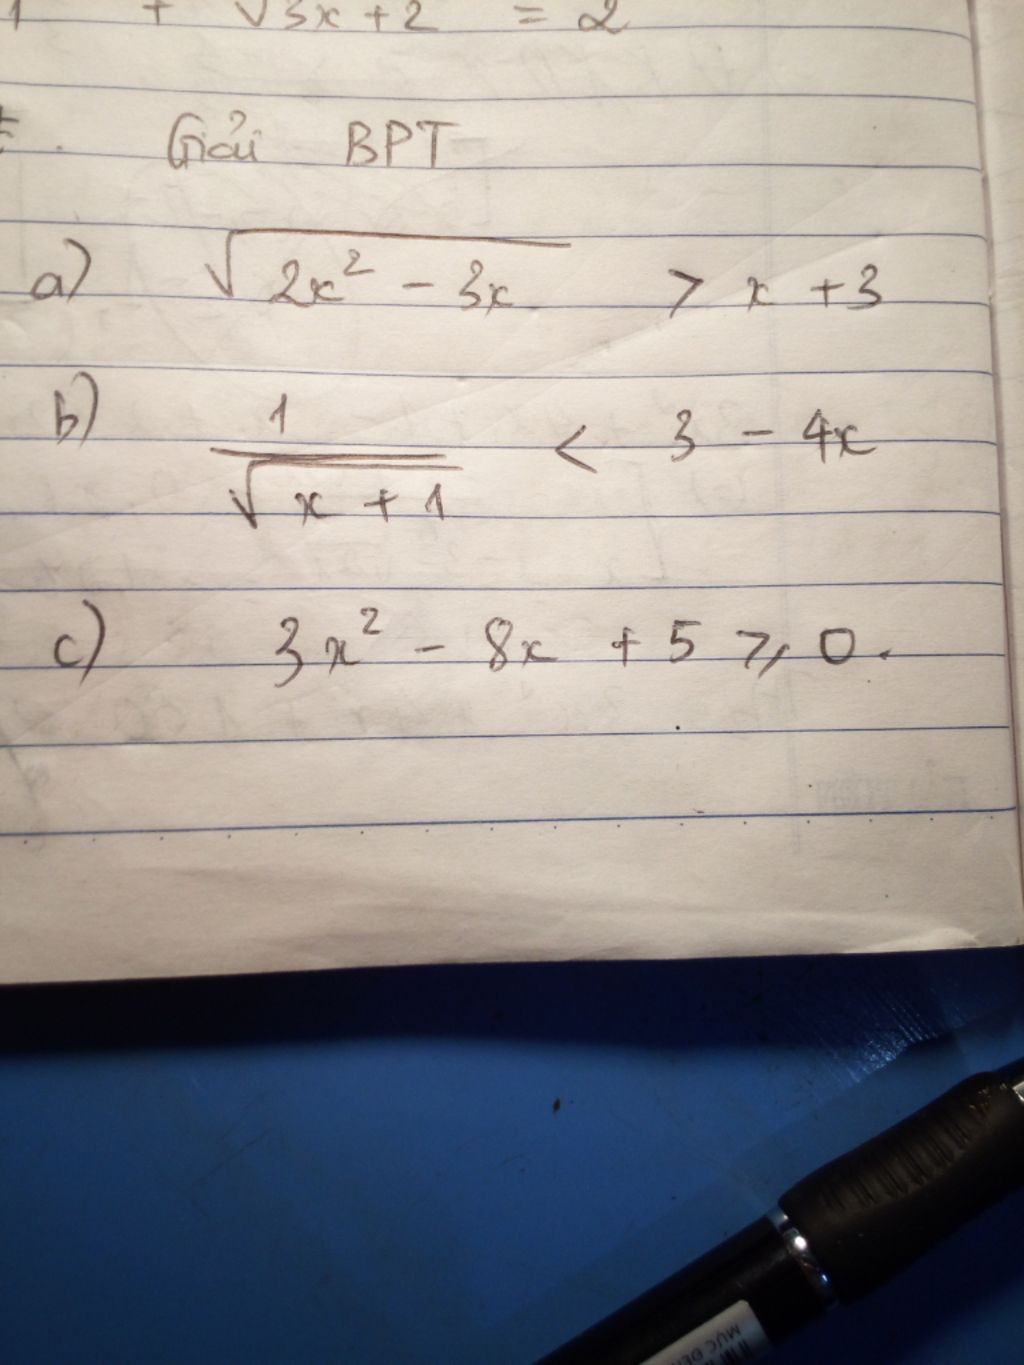 1 + √3x+2 = 2
Giải BPT
a) √(2x² - 3x) > x + 3
b) 1/√(x + 1) < 3 - 4x
c) 3x² - 8x + 5 ⩾ 0.